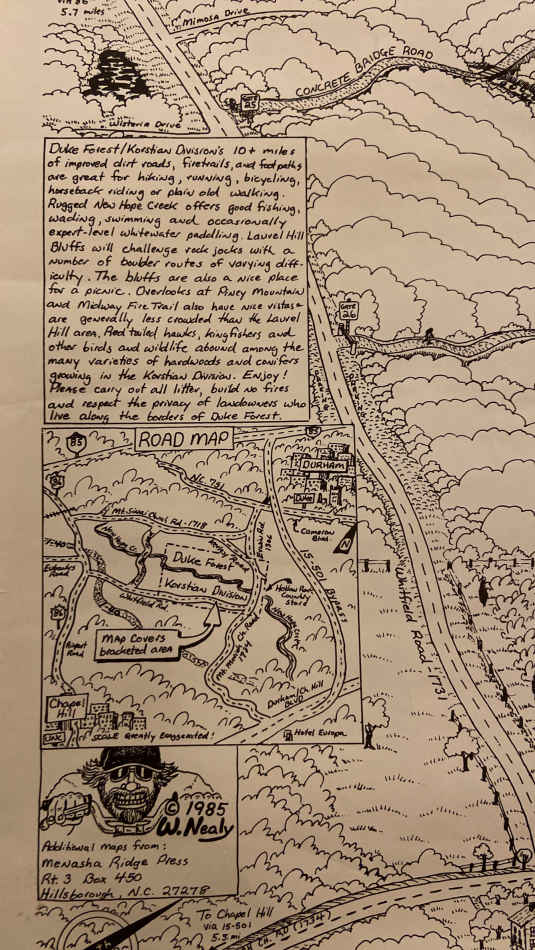 VIA 86
5.7 miles
Mimosa Drive
CONCRETE BRIDGE ROAD
GATE
25
Wisteria Drive
Duke Forest/Korstian Division's 10+ miles
of improved dirt roads, firetrails, and footpaths
are great for hiking, running, bicycling,
horseback riding or plain old walking.
Rugged New Hope Creek offers good fishing,
wading, swimming and occasionally
expert-level whitewater paddling. Laurel Hill
Bluffs will challenge rock jocks with a
number of boulder routes of varying diff-
iculty. The bluffs are also a nice place
for a picnic. Overlooks at Piney Mountain
and Midway Fire Trail also have nice vistas &
are generally less crowded than the Laurel
Hill area. Red tailed hawks, kingfishers and
other birds and wildlife abound among the
many varieties of hardwoods and conifers
growing in the Korstian Division. Enjoy!
Please carry out all litter, build no fires
and respect the privacy of landowners who
live along the borders of Duke Forest.
GATE
26
Whitfield Road - 1731
ROAD MAP
85
85
DURHAM
DUKE
N.C. 751
86
Mt. Sinai Church Rd. - 1718
Cameron
Blvd.
N
I-40
Duke Forest
Korstian Division
Eubanks
Road
Whitfield Rd.
I-40
Erwin Rd.
15-501 Bypass
Hollow Rock
Country
Store
New Hope Creek
86
Map Covers
bracketed area
Airport
Road
Mt. Moriah Ch. Road
1734
Durham/Ch. Hill
Blvd
Chapel
Hill
UNC
SCALE Greatly Exaggerated!
Hotel Europa
© 1985
W. Nealy
Additional maps from:
Menasha Ridge Press
Rt. 3 Box 450
Hillsborough, N.C. 27278
To Chapel Hill
via 15-501
5.5 mi
CH. RD (1734)